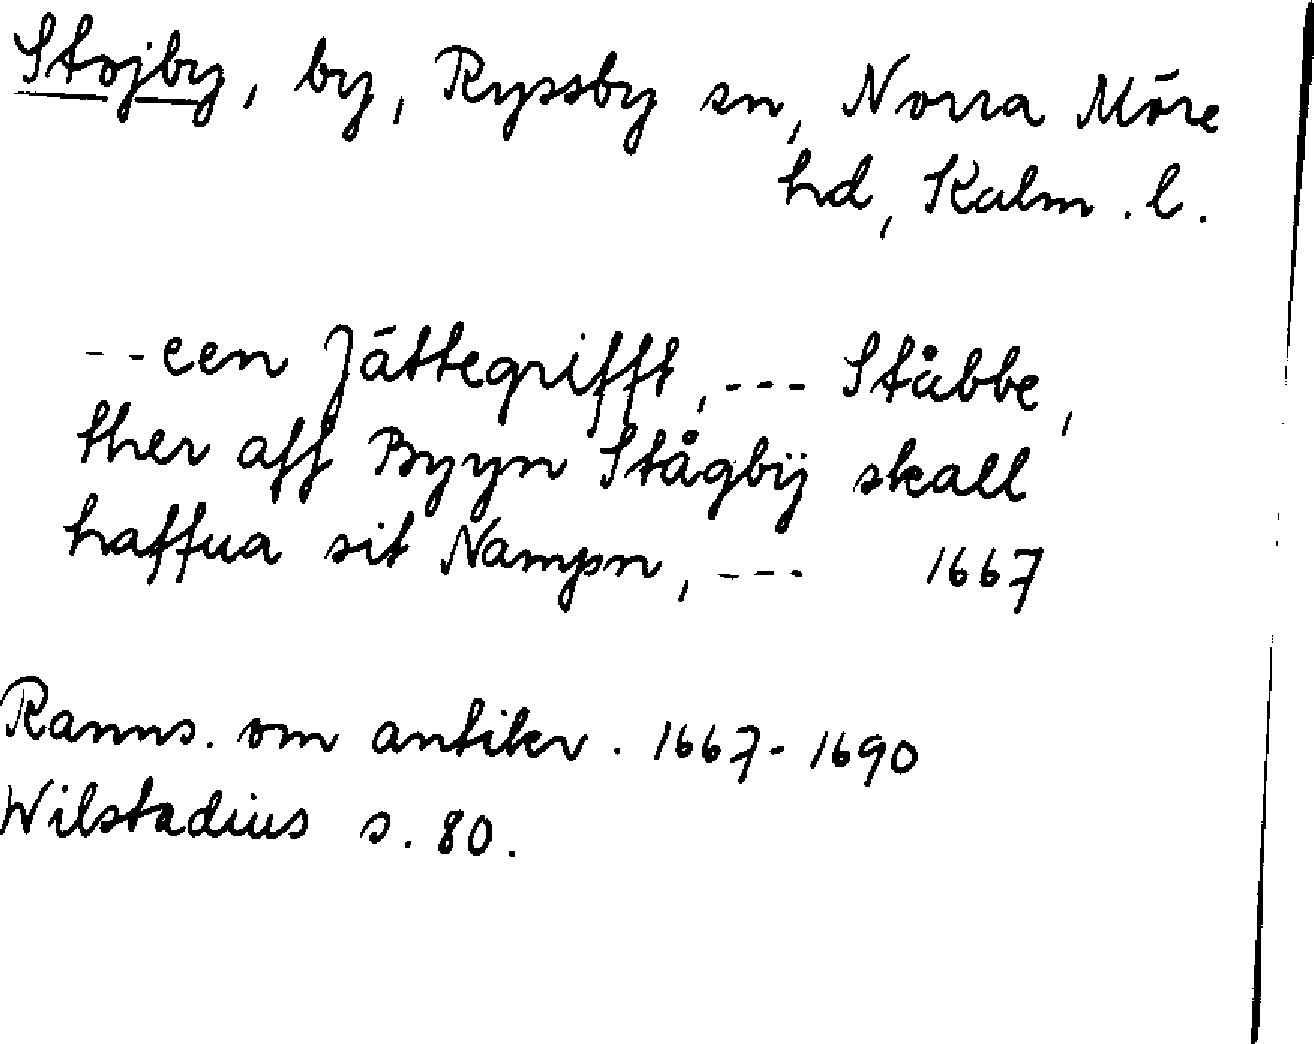 Stojby, by, Ryssby sn, Norra Möre
hd, Kalm. l.
--een Jättegrifft, --- Ståbbe,
ther aff Byyn Stågbÿ skall
haffua sit Nampn, --- 1667
Ranns. om antikv. 1667-1690
Wilstadius s. 80.